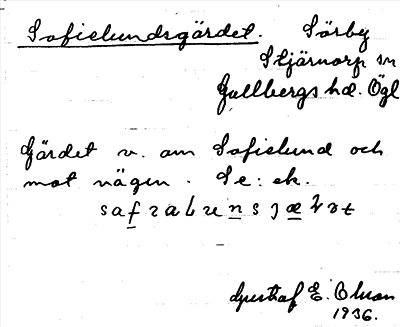 Sofielundsgärdet. Sörby
Stjärnorp sn
Gullbergs hd. Ögl
Gärdet v. om Sofielund och
mot vägen. Se: ek.
Gustaf E. Olson
1936.